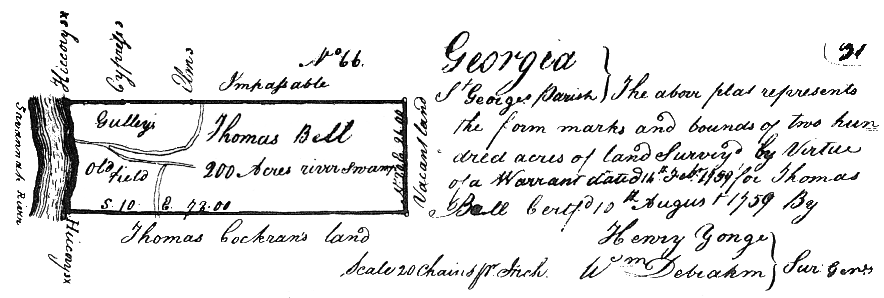 Nº 66.
Hiccoryx
Cypress
Elms
Impassable
Savannah River
Gulleys
Thomas Bell
200 Acres river swamp
Old field
S. 10 E. 72.00
Vacant land
Hiccoryx
Thomas Cockran's land
Scale 20 Chains pr. Inch.
31
Georgia
St Georges Parish } The above plat represents
the form marks and bounds of two hun
dred acres of land Survey'd by Virtue
of a Warrant dated 14th Feby. 1759 for Thomas
Bell Certf'd 10th August 1759 By
Henry Yonge
Wm DeBrahm } Sur Genrs